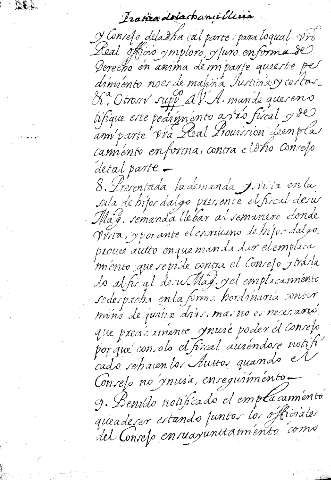 Pratica de la chancilleria
y Consejo de la dha al parte: para lo qual vro
Real officio ymploro, y juro en forma de
derecho en anima de mi parte que este pe
dimiento no es de malicia, Justicia, y costas
Otrosi suppco a V. A. mande que se no
tifique este pedimiento a vro fiscal y de
a mi parte vra Real Provission de empla
camiento en forma, contra el dho Consejo
de tal parte
8. Presentada la demanda y vista en la
sala de hijosdalgo presente el fiscal de su
Magd. se manda llebar al semanero donde
vista, y por ante el escrivano de hijosdalgo,
provee autto en que manda dar el emplaca
miento que se pide contra el Consejo y trasla
do al fiscal de su Magd. y el emplacamiento
se despacha en la forma hordinaria con ter
mino de quince dias, mas no es necesario
que precisamente ynvie poder el Consejo
porque con solo el fiscal aviendose notifi
cado se hacen los Auttos quando el
Consejo no ynvia, en seguimiento
9. Benido notificado el emplacamiento
que a de ser estando juntos los officiales
del Consejo en su ayuntamiento como